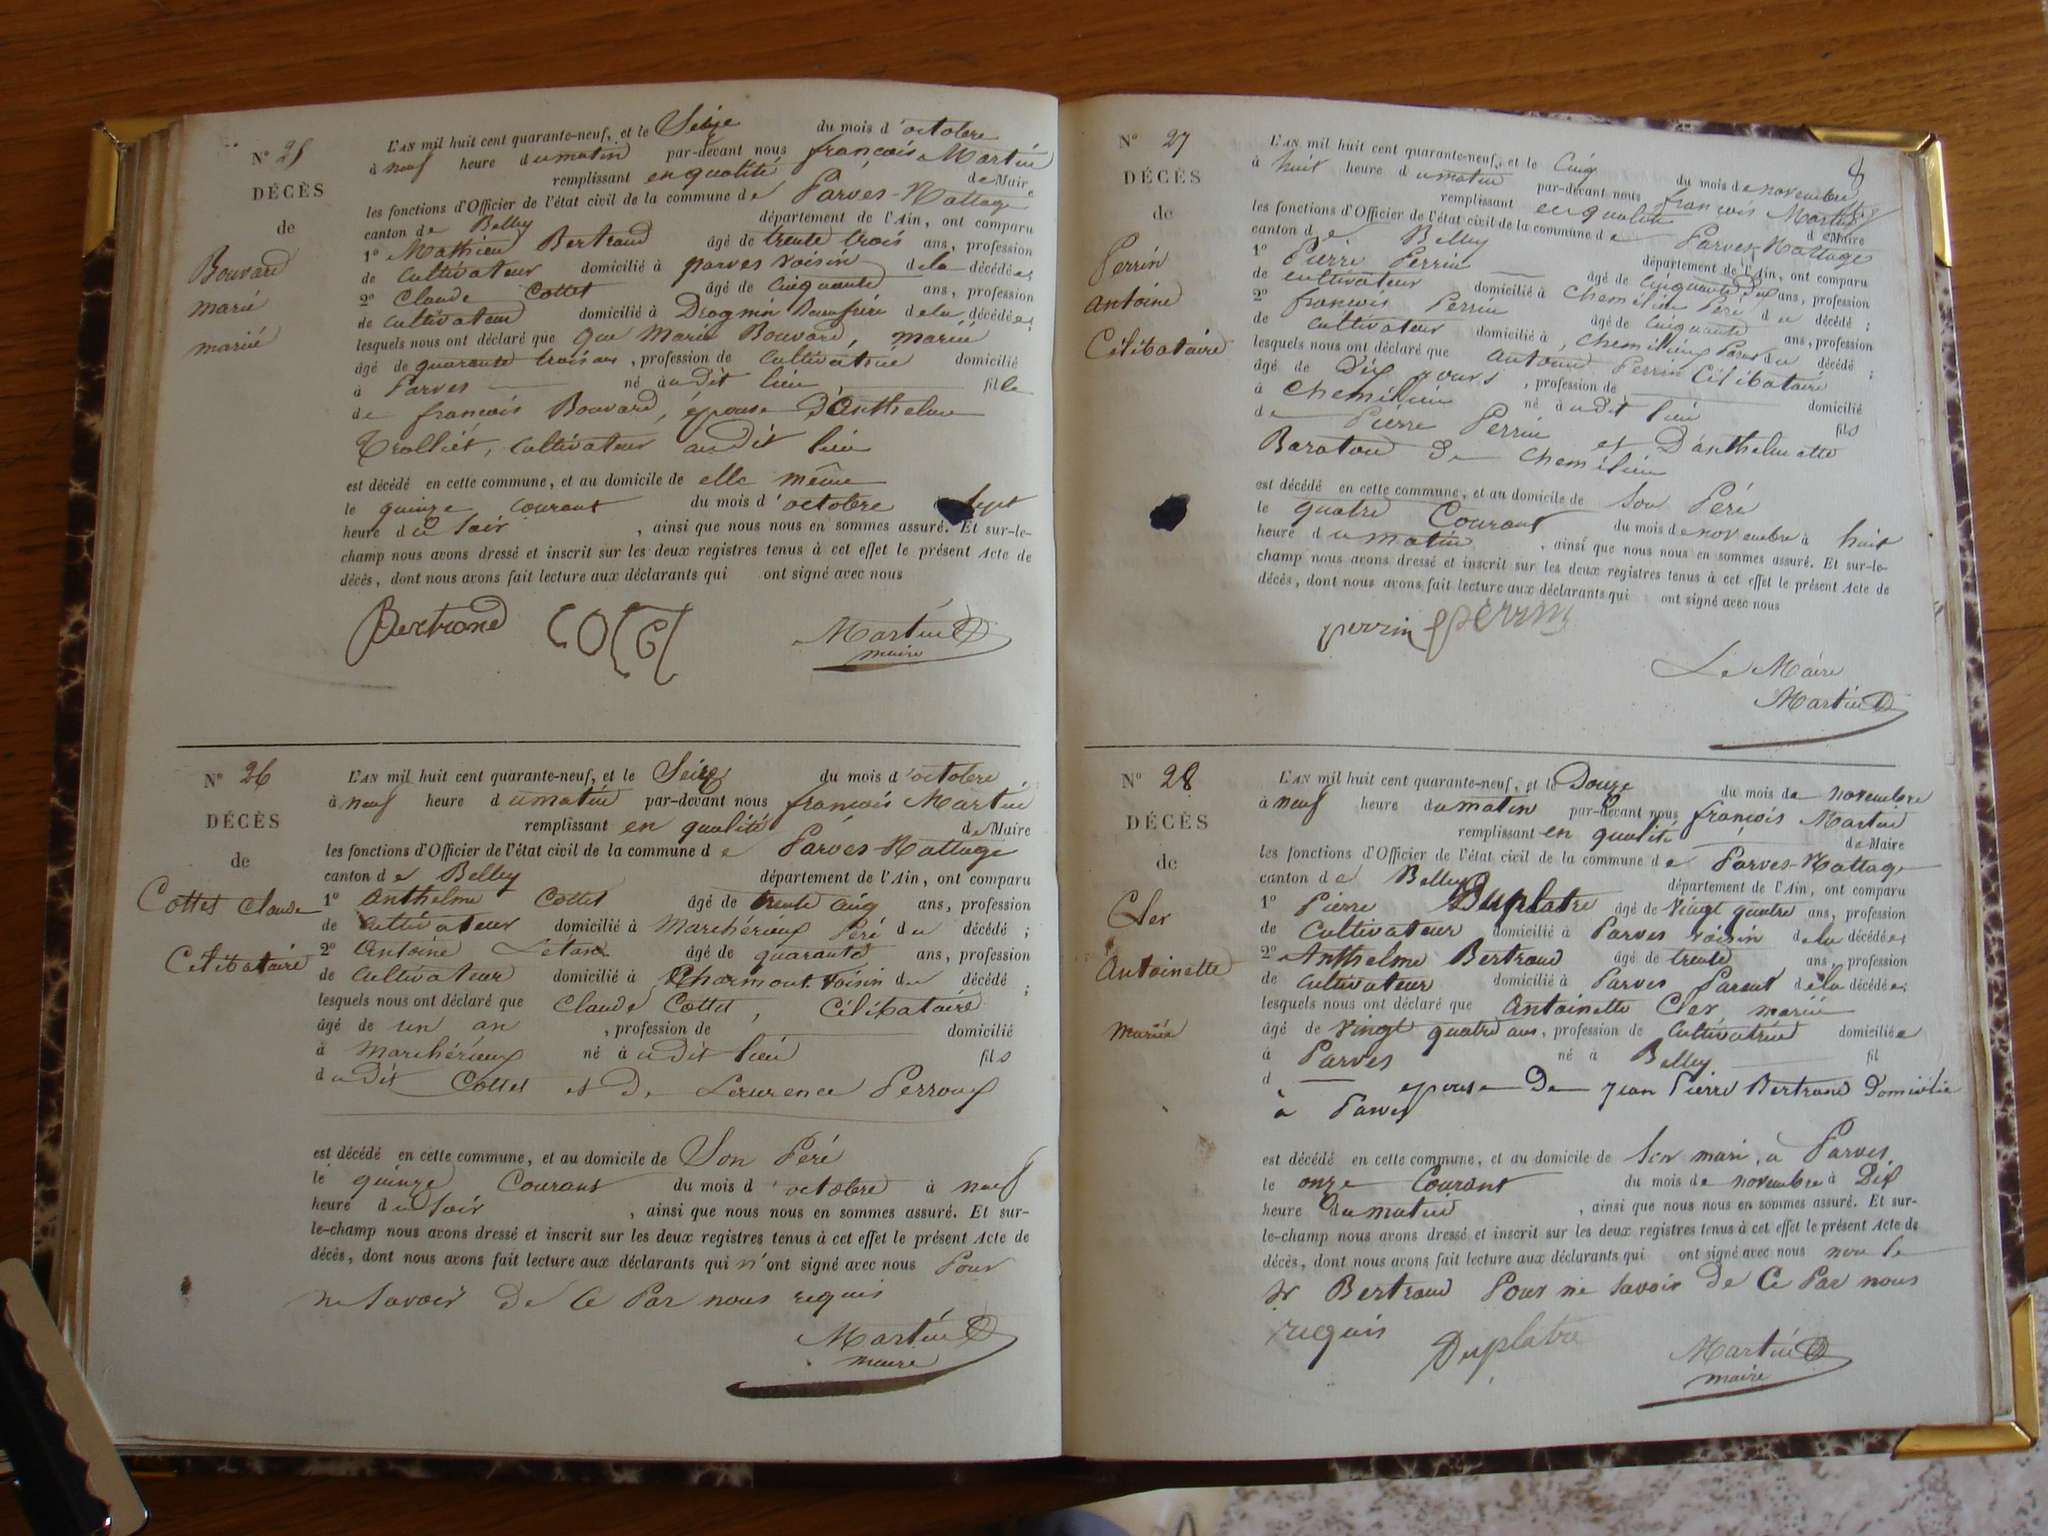 N° 25
DÉCÈS
de
Bouvard
marie
mariée
L'AN mil huit cent quarante-neuf, et le Seize du mois d'octobre
à neuf heure du matin par-devant nous françois Martin
remplissant en qualité de Maire
les fonctions d'Officier de l'état civil de la commune de Parves-Nattage
canton de Belley département de l'Ain, ont comparu
1° Mathieu Bertrand âgé de trente trois ans, profession
de cultivateur domicilié à parves voisin de la décédée;
2° Claude Cottet âgé de cinquante ans, profession
de cultivateur domicilié à Beaufrère de la décédée;
lesquels nous ont déclaré que que Marie Bouvard, mariée
âgé de quarante trois ans, profession de cultivatrice domicilié
à Parves né à udit lieu fille
de françois Bouvard, épouse D'Anthelme
Trolliet, cultivateur audit lieu
est décédé en cette commune, et au domicile de elle même
le quinze courant du mois d'octobre sept
heure du Soir, ainsi que nous nous en sommes assuré. Et sur-le-
champ nous avons dressé et inscrit sur les deux registres tenus à cet effet le présent Acte de
décès, dont nous avons fait lecture aux déclarants qui ont signé avec nous
Bertrand COTET Martin
maire
N° 26
DÉCÈS
de
Cottet Claude
Célibataire
L'AN mil huit cent quarante-neuf, et le Seize du mois d'octobre
à neuf heure du matin par-devant nous françois Martin
remplissant en qualité de Maire
les fonctions d'Officier de l'état civil de la commune de Parves-Nattage
canton de Belley département de l'Ain, ont comparu
1° Anthelme Cottet âgé de trente cinq ans, profession
de cultivateur domicilié à Marchérieux Père du décédé;
2° Antoine âgé de quarante ans, profession
de cultivateur domicilié à Charmont voisin du décédé;
lesquels nous ont déclaré que Claude Cottet, Célibataire
âgé de un an, profession de domicilié
à Marchérieux né à udit lieu fils
dudit Cottet et de Laurence Perroux
est décédé en cette commune, et au domicile de Son Père
le quinze Courant du mois d'octobre à neuf
heure du Soir, ainsi que nous nous en sommes assuré. Et sur-
le-champ nous avons dressé et inscrit sur les deux registres tenus à cet effet le présent Acte de
décès, dont nous avons fait lecture aux déclarants qui n'ont signé avec nous Pour
ne Savoir de Ce Par nous requis
Martin
maire
8
N° 27
DÉCÈS
de
Perrin
Antoine
Célibataire
L'AN mil huit cent quarante-neuf, et le Cinq du mois de novembre
à huit heure du matin par-devant nous françois Martin
remplissant en qualité de Maire
les fonctions d'Officier de l'état civil de la commune de Parves-Nattage
canton de Belley département de l'Ain, ont comparu
1° Pierre Perrin âgé de cinquante Dix ans, profession
de cultivateur domicilié à Chemilieu Père du décédé;
2° françois Perrin âgé de cinquante ans, profession
de cultivateur domicilié à, chemilieu Parent du décédé;
lesquels nous ont déclaré que Antoine Perrin Célibataire
âgé de Dix jours, profession de domicilié
à Chemilieu né à udit lieu fils
de Pierre Perrin et D'anthelmette
Baraton De Chemilieu
est décédé en cette commune, et au domicile de Son Père
le quatre Courant du mois de novembre à huit
heure du matin, ainsi que nous nous en sommes assuré. Et sur-le-
champ nous avons dressé et inscrit sur les deux registres tenus à cet effet le présent Acte de
décès, dont nous avons fait lecture aux déclarants qui ont signé avec nous
perrin perrin
Le Maire
Martin
N° 28
DÉCÈS
de
Cler
Antoinette
Mariée
L'AN mil huit cent quarante-neuf, et le Douze du mois de novembre
à neuf heure du matin par-devant nous françois Martin
remplissant en qualité de Maire
les fonctions d'Officier de l'état civil de la commune de Parves-Nattage
canton de Belley département de l'Ain, ont comparu
1° Pierre Duplatre âgé de vingt quatre ans, profession
de Cultivateur domicilié à Parves voisin de la décédée;
2° Anthelme Bertrand âgé de trente ans, profession
de cultivateur domicilié à Parves Parent de la décédée;
lesquels nous ont déclaré que Antoinette Cler mariée
âgé de vingt quatre ans, profession de Cultivatrice domiciliée
à Parves né à Belley fil
d épouse De jean Pierre Bertrand Domicilié
à Parves
est décédé en cette commune, et au domicile de Son mari, à Parves
le onze Courant du mois de novembre à Dix
heure du matin, ainsi que nous nous en sommes assuré. Et sur-
le-champ nous avons dressé et inscrit sur les deux registres tenus à cet effet le présent Acte de
décès, dont nous avons fait lecture aux déclarants qui ont signé avec nous non le
Sr Bertrand Pour ne Savoir de Ce Par nous
requis Duplatre Martin
maire